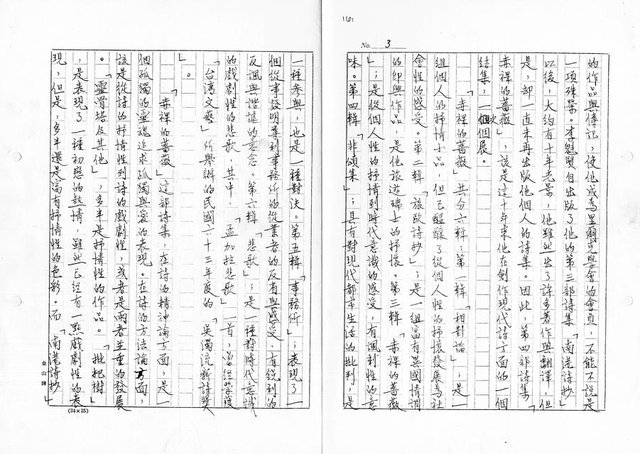 No. 3
的作品與傳記,使他成為里爾克學會的會員,不能不說是
一項殊榮。李魁賢自出版了他的第三部詩集「南港詩抄」
以後,大約有十年光景,他雖然出了許多著作與翻譯,但
是,卻一直未再出版他個人的詩集。因此,第四部詩集「
赤裸的薔薇」,該是這十年來他在創作現代詩方面的一個
結集,一次個展。
「赤裸的薔薇」共分六輯:第一輯「相對論」;是一
組個人的抒情小品,但已醞釀了從個人性的抒懷發展為社
會性的感受。第二輯「旅歐詩抄」;是一組富有異國情調
的即興作品,是他旅遊瑞士的抒懷。第三輯「赤裸的薔薇
」;是從個人性的抒情到時代意識的感受,有諷刺性的意
味。第四輯「非頌集」;具有對現代都市生活的批判,是
一種參與,也是一種對決。第五輯「事務所」;表現了一
個從事發明專利事務所的從業者的反省與感受,有銳利的
反諷與諧謔的意念。第六輯「悲歌」;是一種對時代意識
的戲劇性的悲歌,其中,「孟加拉悲歌」一首,曾經榮獲
「台灣文藝」所舉辦的民國六十三年度的「吳濁流新詩獎
」。
「赤裸的薔薇」這部詩集,在詩的精神論方面,是一
個孤獨的靈魂追求孤獨與愛的表現。在詩的方法論方面,
該是從詩的抒情性到詩的戲劇性,或者是兩者並重的發展
。「靈骨塔及其他」,多半是抒情性的作品。「枇杷樹」
,是表現了一種初戀的鼓情,雖然已經有一點戲劇性的表
現,但是,多半還是富有抒情性的色彩。而「南港詩抄」
(24×25)